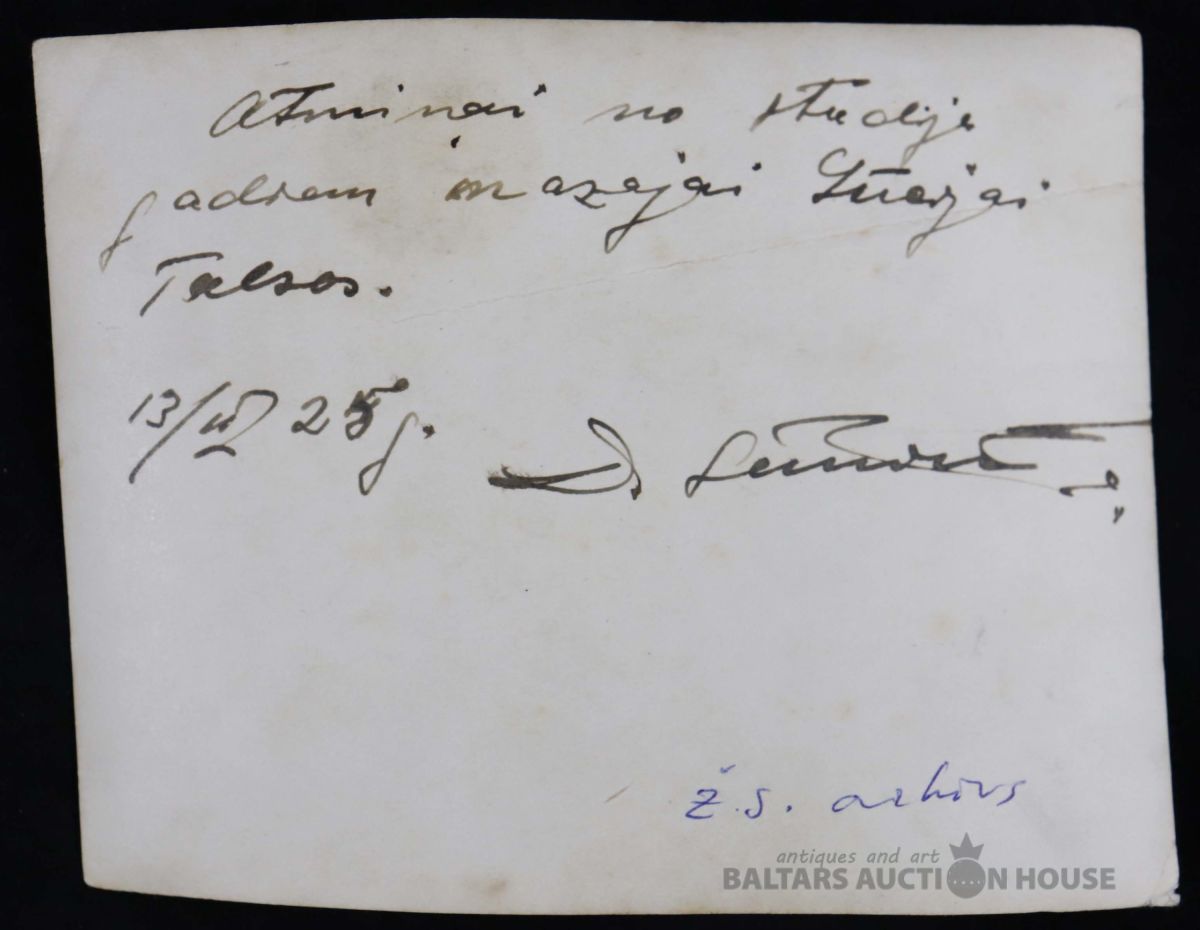 Atmiņai no studiju
gadiem mazajai Lūcijai
Talsos.
13/III 25 g.
Ž.S. arhivs
antiques and art
BALTARS AUCTION HOUSE